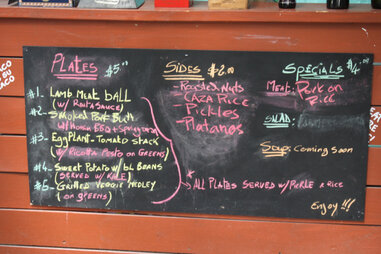 PLATES $5.00
#1- LAMB MEAT BALL
(W/ ROMA SAUCE)
#2- Smoked Pork Butt
W/Honey BBQ +
#3- EggPLANT-Tomato STACK
(W/ RICOTTA PESTO on GREENS)
#4- Sweet Potato w/ bl BEANS
(SERVED W/ KALE)
#5- Grilled Veggie Medley
(on greens)
SIDES $2.00
-Roasted Nuts
CAZA Rice
-Pickles
-Platanos
* ALL PLATES SERVED W/ PICKLE & RICE
SPECIALS $4.00
MEAT: Pork on
Rice
SALAD:
Soup: Coming Soon
Enjoy!!!